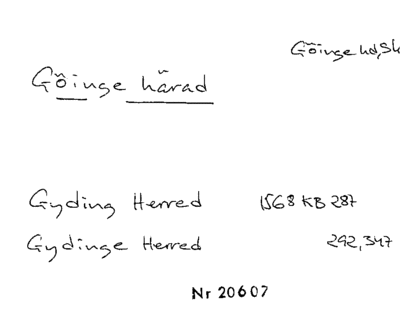 Göinge hd, Sk
Göinge härad
Gyding Herred 1568 KB 287
Gydinge Herred 292, 347
Nr 20607